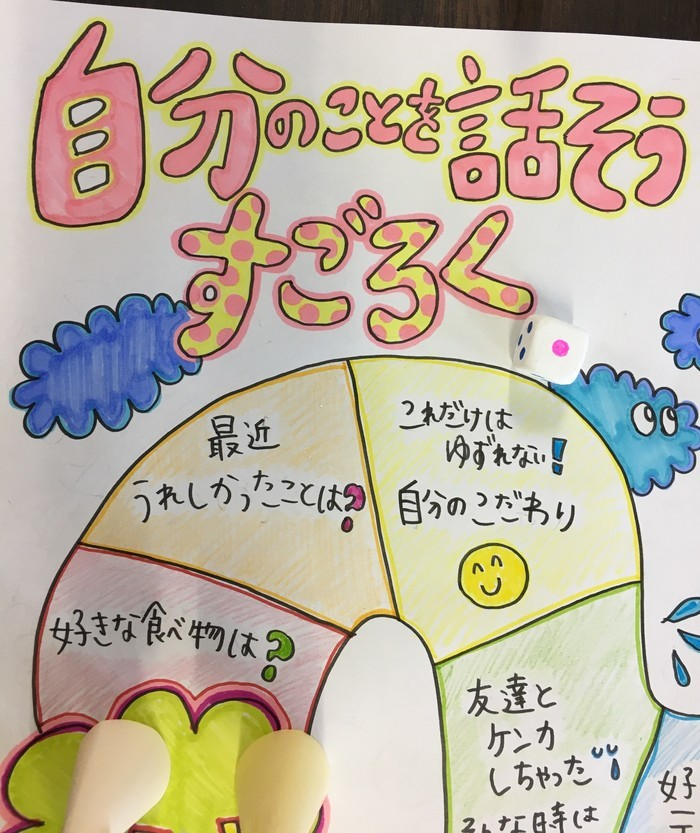 自分のことを話そう
すごろく
好きな食べ物は?
最近
うれしかったことは?
これだけは
ゆずれない!
自分のこだわり
友達と
ケンカ
しちゃった
そんな時は
好